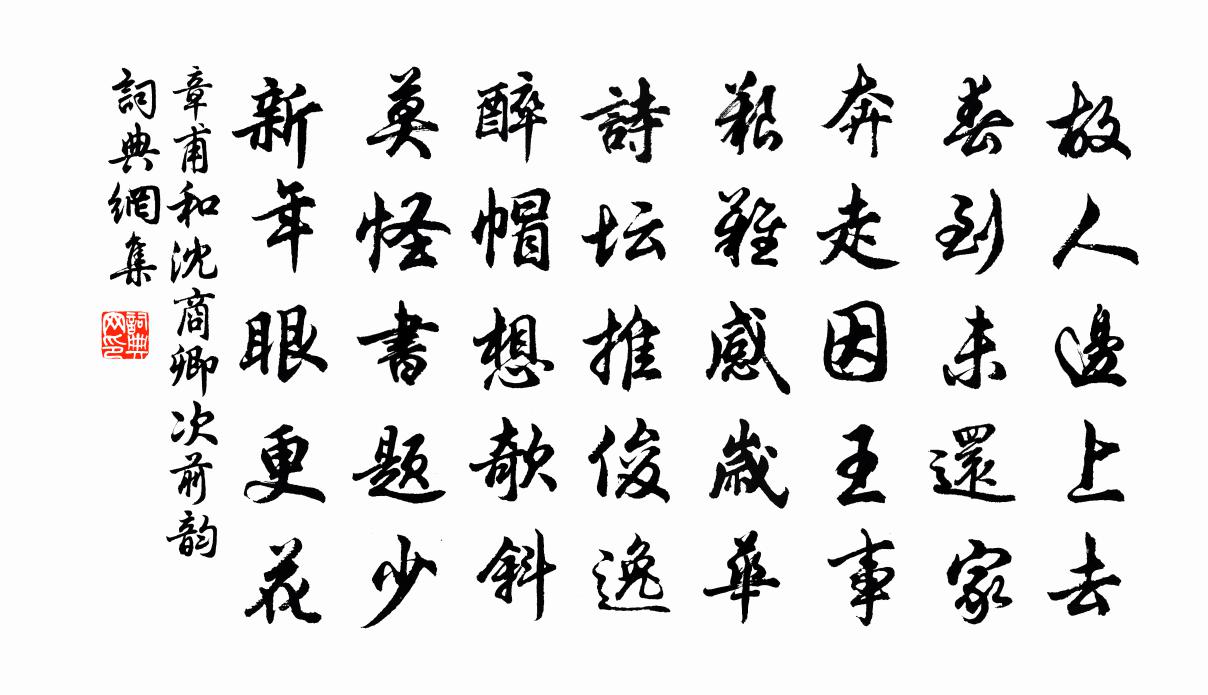 故人邊上去
春到未還家
奔走因王事
艱難感歲華
詩坛推俊逸
醉帽想欹斜
莫怪書題少
新年眼更花
章甫和沈商卿次前韵
詞典網集